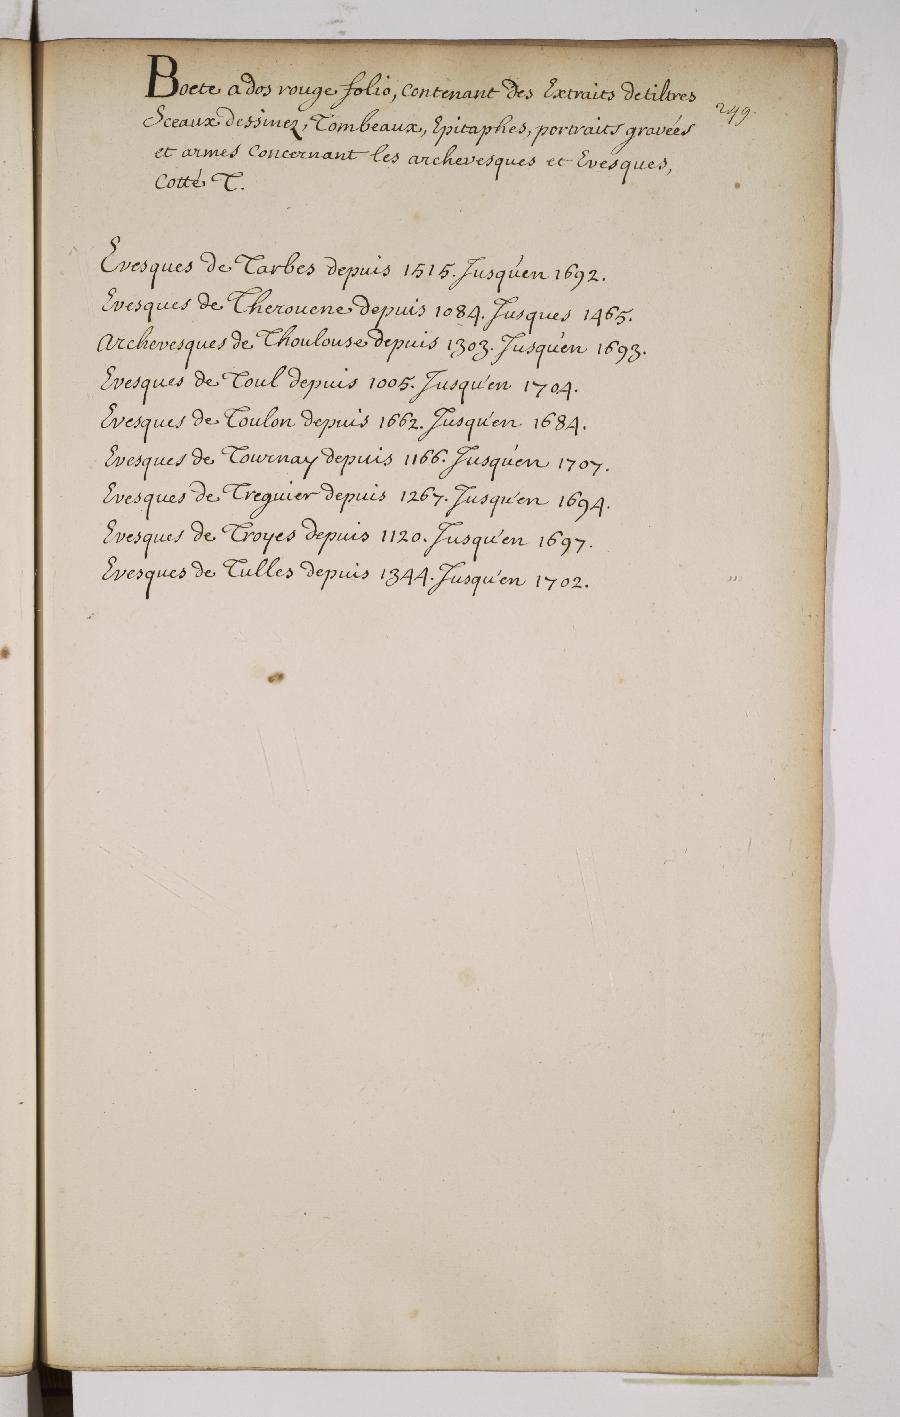 Boete a dos rouge folio, contenant des Extraits de tiltres
249.
Sceaux dessinez, Tombeaux, Epitaphes, portraits gravées
et armes concernant les archevesques et Evesques,
Cotté T.
Evesques de Tarbes depuis 1515. Jusqu'en 1692.
Evesques de Therouene depuis 1084. Jusques 1465.
Archevesques de Thoulouse depuis 1303. Jusqu'en 1693.
Evesques de Toul depuis 1005. Jusqu'en 1704.
Evesques de Toulon depuis 1662. Jusqu'en 1684.
Evesques de Tournay depuis 1166. Jusqu'en 1707.
Evesques de Treguier depuis 1267. Jusqu'en 1694.
Evesques de Troyes depuis 1120. Jusqu'en 1697.
Evesques de Tulles depuis 1344. Jusqu'en 1702.